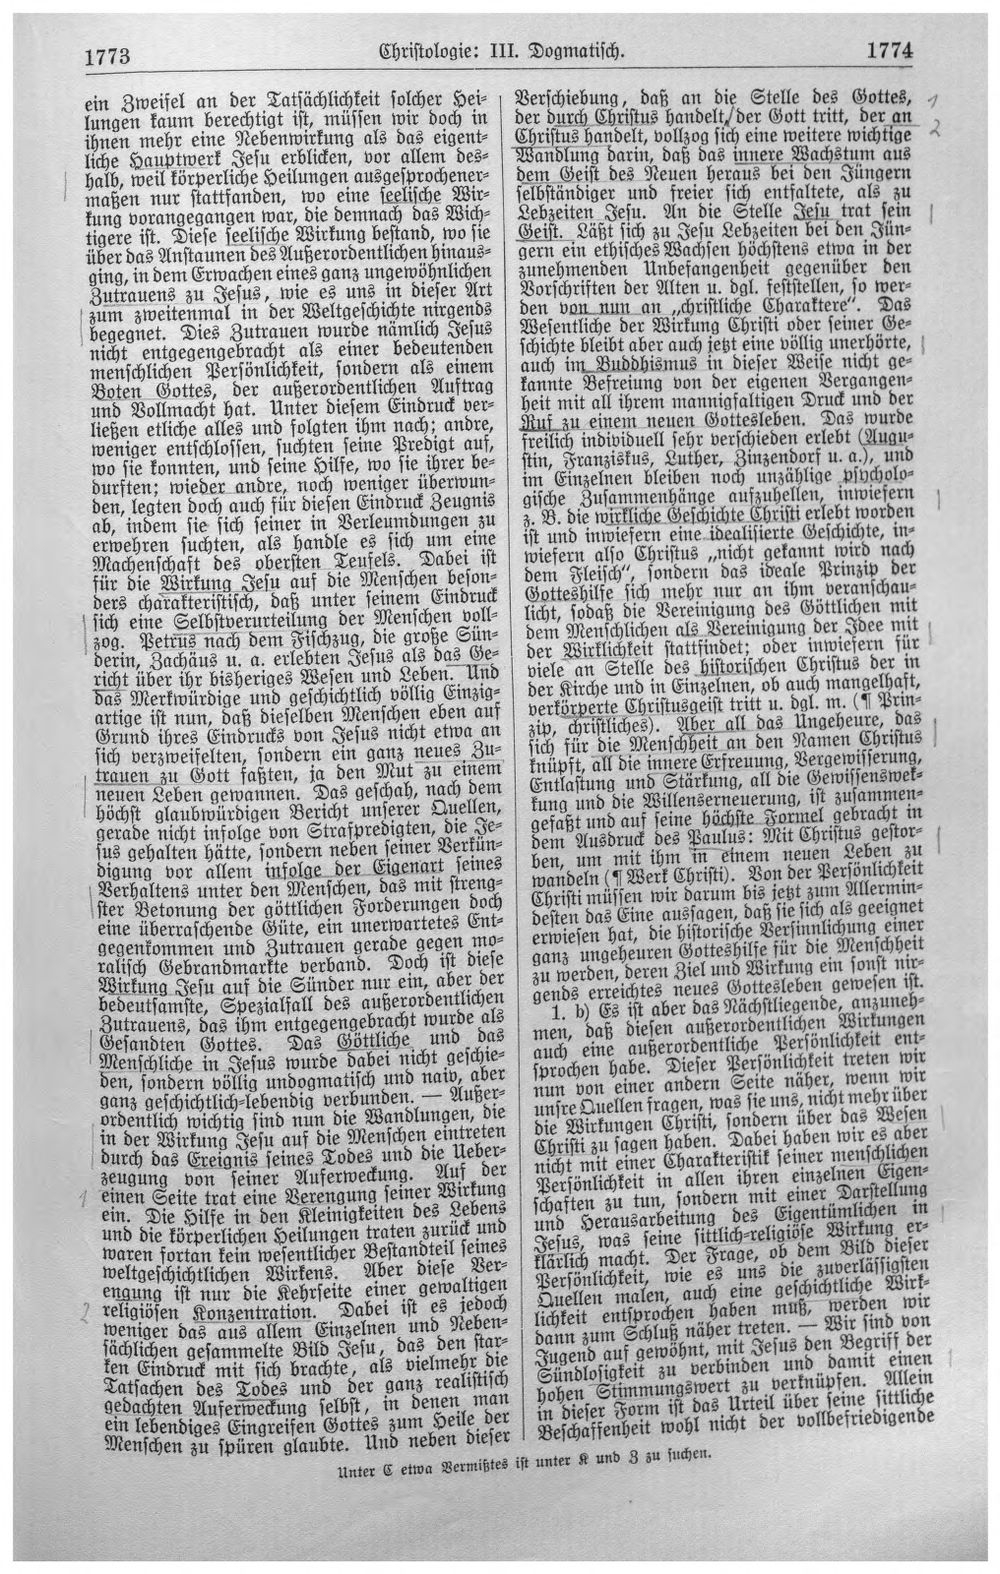 1773
Christologie: III. Dogmatisch.
1774
ein Zweifel an der Tatsächlichkeit solcher Hei-
lungen kaum berechtigt ist, müssen wir doch in
ihnen mehr eine Nebenwirkung als das eigent-
liche Hauptwerk Jesu erblicken, vor allem des-
halb, weil körperliche Heilungen ausgesprochener-
maßen nur stattfanden, wo eine seelische Wir-
kung vorangegangen war, die demnach das Wich-
tigere ist. Diese seelische Wirkung bestand, wo sie
über das Anstaunen des Außerordentlichen hinaus-
ging, in dem Erwachen eines ganz ungewöhnlichen
Zutrauens zu Jesus, wie es uns in dieser Art
zum zweitenmal in der Weltgeschichte nirgends
begegnet. Dies Zutrauen wurde nämlich Jesus
nicht entgegengebracht als einer bedeutenden
menschlichen Persönlichkeit, sondern als einem
Boten Gottes, der außerordentlichen Auftrag
und Vollmacht hat. Unter diesem Eindruck ver-
ließen etliche alles und folgten ihm nach; andre,
weniger entschlossen, suchten seine Predigt auf,
wo sie konnten, und seine Hilfe, wo sie ihrer be-
durften; wieder andre, noch weniger überwun-
den, legten doch auch für diesen Eindruck Zeugnis
ab, indem sie sich seiner in Verleumdungen zu
erwehren suchten, als handle es sich um eine
Machenschaft des obersten Teufels. Dabei ist
für die Wirkung Jesu auf die Menschen beson-
ders charakteristisch, daß unter seinem Eindruck
sich eine Selbstverurteilung der Menschen voll-
zog. Petrus nach dem Fischzug, die große Sün-
derin, Zachäus u. a. erlebten Jesus als das Ge-
richt über ihr bisheriges Wesen und Leben. Und
das Merkwürdige und geschichtlich völlig Einzig-
artige ist nun, daß dieselben Menschen eben auf
Grund ihres Eindrucks von Jesus nicht etwa an
sich verzweifelten, sondern ein ganz neues Zu-
trauen zu Gott faßten, ja den Mut zu einem
neuen Leben gewannen. Das geschah, nach dem
höchst glaubwürdigen Bericht unserer Quellen,
gerade nicht infolge von Strafpredigten, die Je-
sus gehalten hätte, sondern neben seiner Verkün-
digung vor allem infolge der Eigenart seines
Verhaltens unter den Menschen, das mit streng-
ster Betonung der göttlichen Forderungen doch
eine überraschende Güte, ein unerwartetes Ent-
gegenkommen und Zutrauen gerade gegen mo-
ralisch Gebrandmarkte verband. Doch ist diese
Wirkung Jesu auf die Sünder nur ein, aber der
bedeutsamste, Spezialfall des außerordentlichen
Zutrauens, das ihm entgegengebracht wurde als
Gesandten Gottes. Das Göttliche und das
Menschliche in Jesus wurde dabei nicht geschie-
den, sondern völlig undogmatisch und naiv, aber
ganz geschichtlich-lebendig verbunden. — Außer-
ordentlich wichtig sind nun die Wandlungen, die
in der Wirkung Jesu auf die Menschen eintreten
durch das Ereignis seines Todes und die Ueber-
zeugung von seiner Auferweckung. Auf der
1 einen Seite trat eine Verengung seiner Wirkung
ein. Die Hilfe in den Kleinigkeiten des Lebens
und die körperlichen Heilungen traten zurück und
waren fortan kein wesentlicher Bestandteil seines
weltgeschichtlichen Wirkens. Aber diese Ver-
engung ist nur die Kehrseite einer gewaltigen
2 religiösen Konzentration. Dabei ist es jedoch
weniger das aus allem Einzelnen und Neben-
sächlichen gesammelte Bild Jesu, das den star-
ken Eindruck mit sich brachte, als vielmehr die
Tatsachen des Todes und der ganz realistisch
gedachten Auferweckung selbst, in denen man
ein lebendiges Eingreifen Gottes zum Heile der
Menschen zu spüren glaubte. Und neben dieser
Verschiebung, daß an die Stelle des Gottes, 1
der durch Christus handelt, der Gott tritt, der an 2
Christus handelt, vollzog sich eine weitere wichtige
Wandlung darin, daß das innere Wachstum aus
dem Geist des Neuen heraus bei den Jüngern
selbständiger und freier sich entfaltete, als zu
Lebzeiten Jesu. An die Stelle Jesu trat sein
Geist. Läßt sich zu Jesu Lebzeiten bei den Jün-
gern ein ethisches Wachsen höchstens etwa in der
zunehmenden Unbefangenheit gegenüber den
Vorschriften der Alten u. dgl. feststellen, so wer-
den von nun an „christliche Charaktere“. Das
Wesentliche der Wirkung Christi oder seiner Ge-
schichte bleibt aber auch jetzt eine völlig unerhörte,
auch im Buddhismus in dieser Weise nicht ge-
kannte Befreiung von der eigenen Vergangen-
heit mit all ihrem mannigfaltigen Druck und der
Ruf zu einem neuen Gottesleben. Das wurde
freilich individuell sehr verschieden erlebt (Augu-
stin, Franziskus, Luther, Zinzendorf u. a.), und
im Einzelnen bleiben noch unzählige psycholo-
gische Zusammenhänge aufzuhellen, inwiefern
z. B. die wirkliche Geschichte Christi erlebt worden
ist und inwiefern eine idealisierte Geschichte, in-
wiefern also Christus „nicht gekannt wird nach
dem Fleisch“, sondern das ideale Prinzip der
Gotteshilfe sich mehr nur an ihm veranschau-
licht, sodaß die Vereinigung des Göttlichen mit
dem Menschlichen als Vereinigung der Idee mit
der Wirklichkeit stattfindet; oder inwiefern für
viele an Stelle des historischen Christus der in
der Kirche und in Einzelnen, ob auch mangelhaft,
verkörperte Christusgeist tritt u. dgl. m. (¶ Prin-
zip, christliches). Aber all das Ungeheure, das
sich für die Menschheit an den Namen Christus
knüpft, all die innere Erfreuung, Vergewisserung,
Entlastung und Stärkung, all die Gewissenswek-
kung und die Willenserneuerung, ist zusammen-
gefaßt und auf seine höchste Formel gebracht in
dem Ausdruck des Paulus: Mit Christus gestor-
ben, um mit ihm in einem neuen Leben zu
wandeln (¶ Werk Christi). Von der Persönlichkeit
Christi müssen wir darum bis jetzt zum Allermin-
desten das Eine aussagen, daß sie sich als geeignet
erwiesen hat, die historische Versinnlichung einer
ganz ungeheuren Gotteshilfe für die Menschheit
zu werden, deren Ziel und Wirkung ein sonst nir-
gends erreichtes neues Gottesleben gewesen ist.
1. b) Es ist aber das Nächstliegende, anzuneh-
men, daß diesen außerordentlichen Wirkungen
auch eine außerordentliche Persönlichkeit ent-
sprochen habe. Dieser Persönlichkeit treten wir
nun von einer andern Seite näher, wenn wir
unsre Quellen fragen, was sie uns, nicht mehr über
die Wirkungen Christi, sondern über das Wesen
Christi zu sagen haben. Dabei haben wir es aber
nicht mit einer Charakteristik seiner menschlichen
Persönlichkeit in allen ihren einzelnen Eigen-
schaften zu tun, sondern mit einer Darstellung
und Herausarbeitung des Eigentümlichen in
Jesus, was seine sittlich-religiöse Wirkung er-
klärlich macht. Der Frage, ob dem Bild dieser
Persönlichkeit, wie es uns die zuverlässigsten
Quellen malen, auch eine geschichtliche Wirk-
lichkeit entsprochen haben muß, werden wir
dann zum Schluß näher treten. — Wir sind von
Jugend auf gewöhnt, mit Jesus den Begriff der
Sündlosigkeit zu verbinden und damit einen
hohen Stimmungswert zu verknüpfen. Allein
in dieser Form ist das Urteil über seine sittliche
Beschaffenheit wohl nicht der vollbefriedigende
Unter C etwa Vermißtes ist unter K und Z zu suchen.